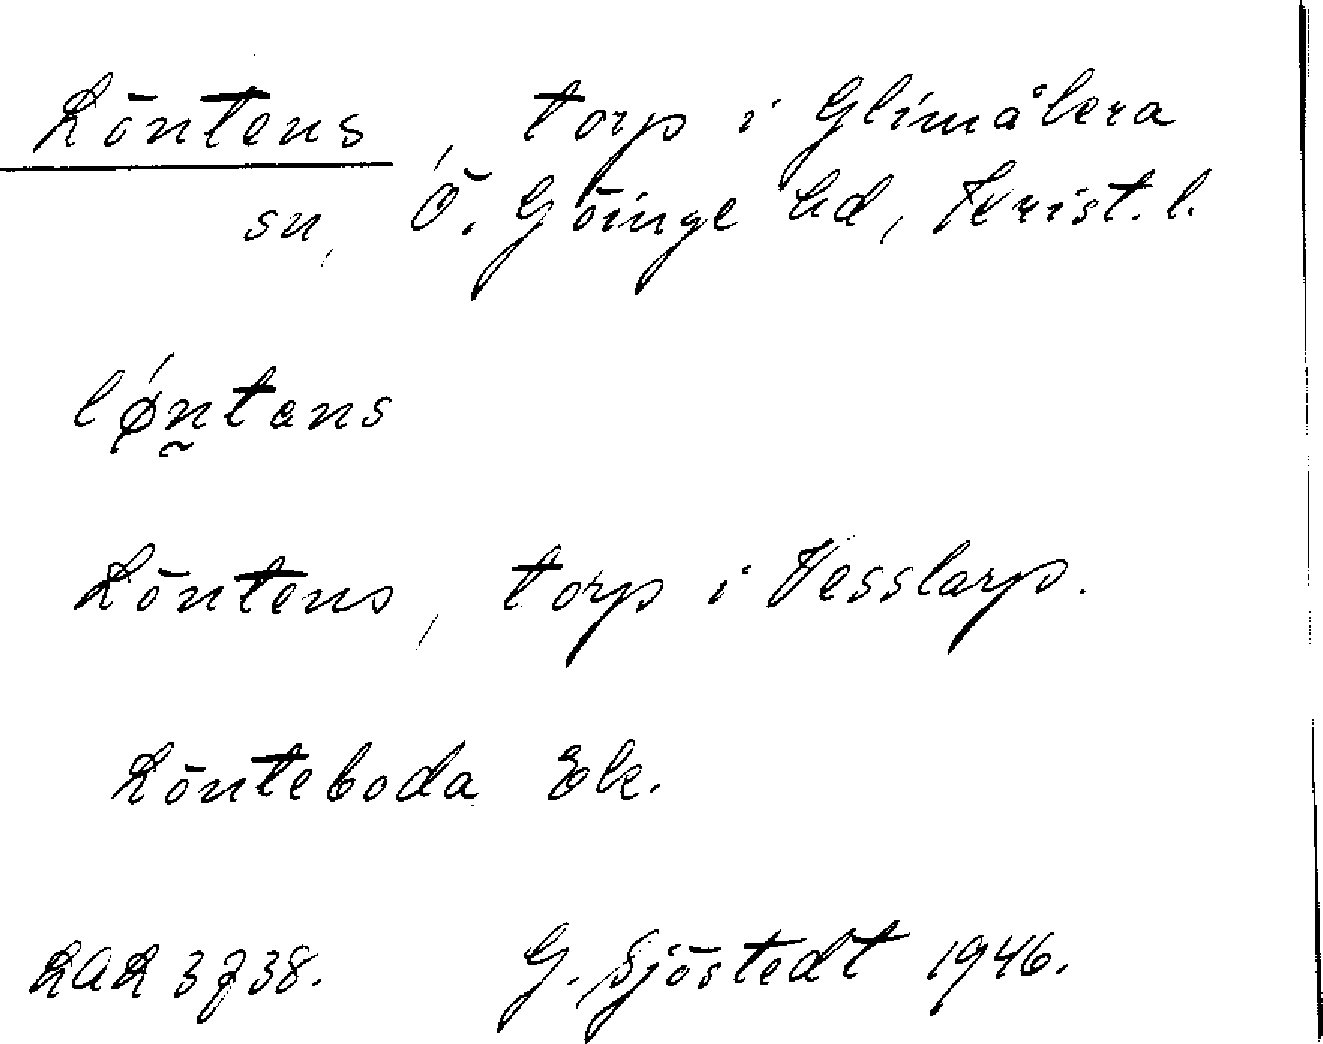 Löntens, torp i Glimåkra
sn, Ö. Göinge hd, Krist. l.
løntans
Löntens, torp i Vesslarp.
Lönteboda Ek.
LAL 3738. G. Sjöstedt 1946.